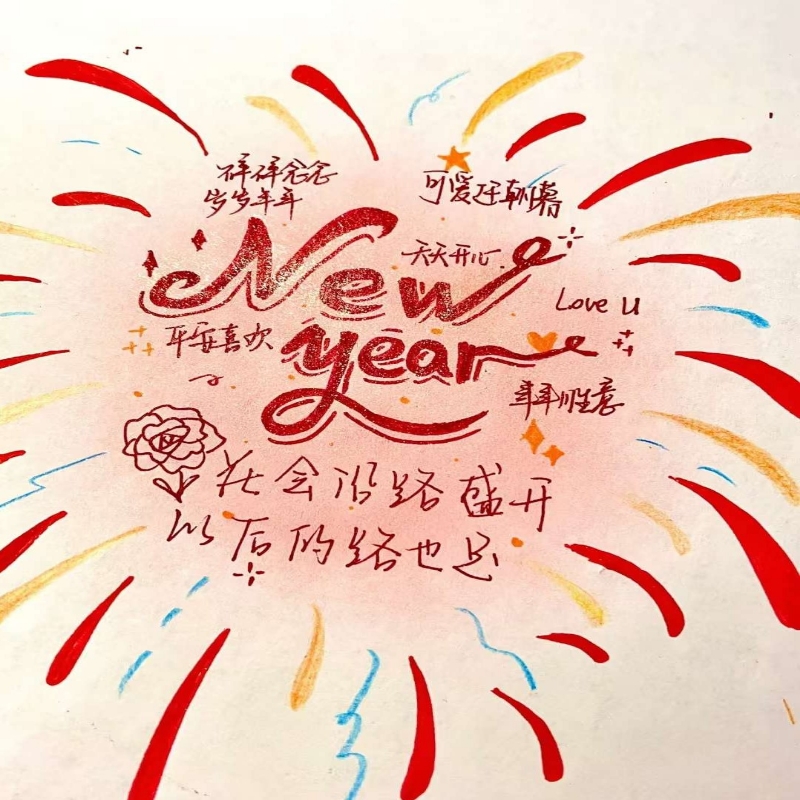 碎碎念念
岁岁年年
可爱
天天开心
New
Love u
year
平安喜欢
年年胜意
花会沿路盛开
以后的路也是